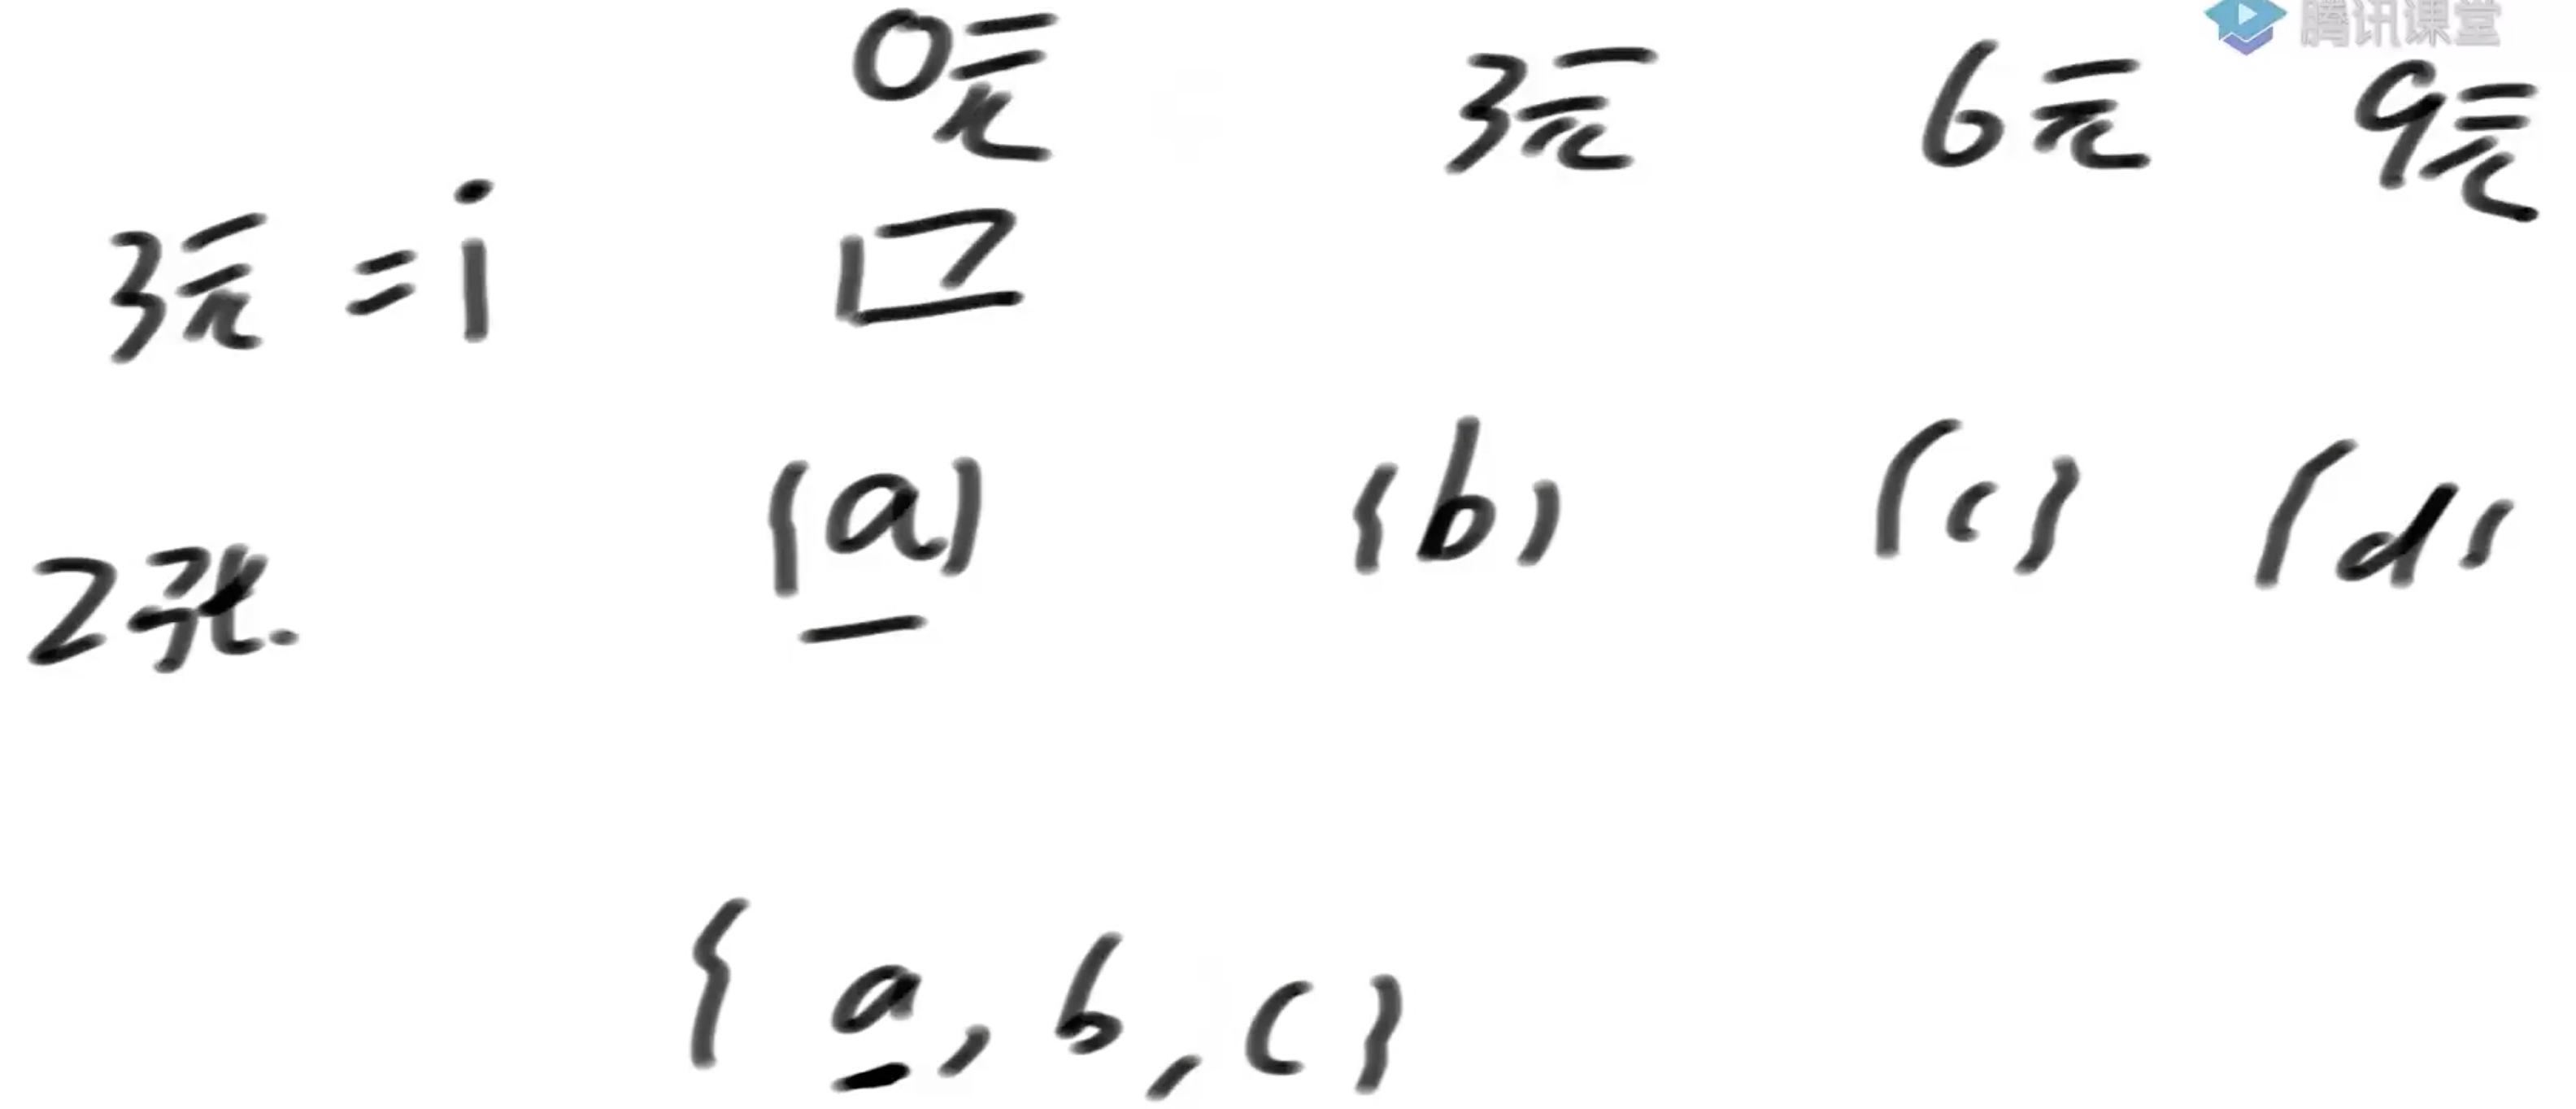 腾讯课堂
0元 3元 6元 9元
3元 = i 口
{a} {b} {c} {d}
2张.
{ a, b, c }